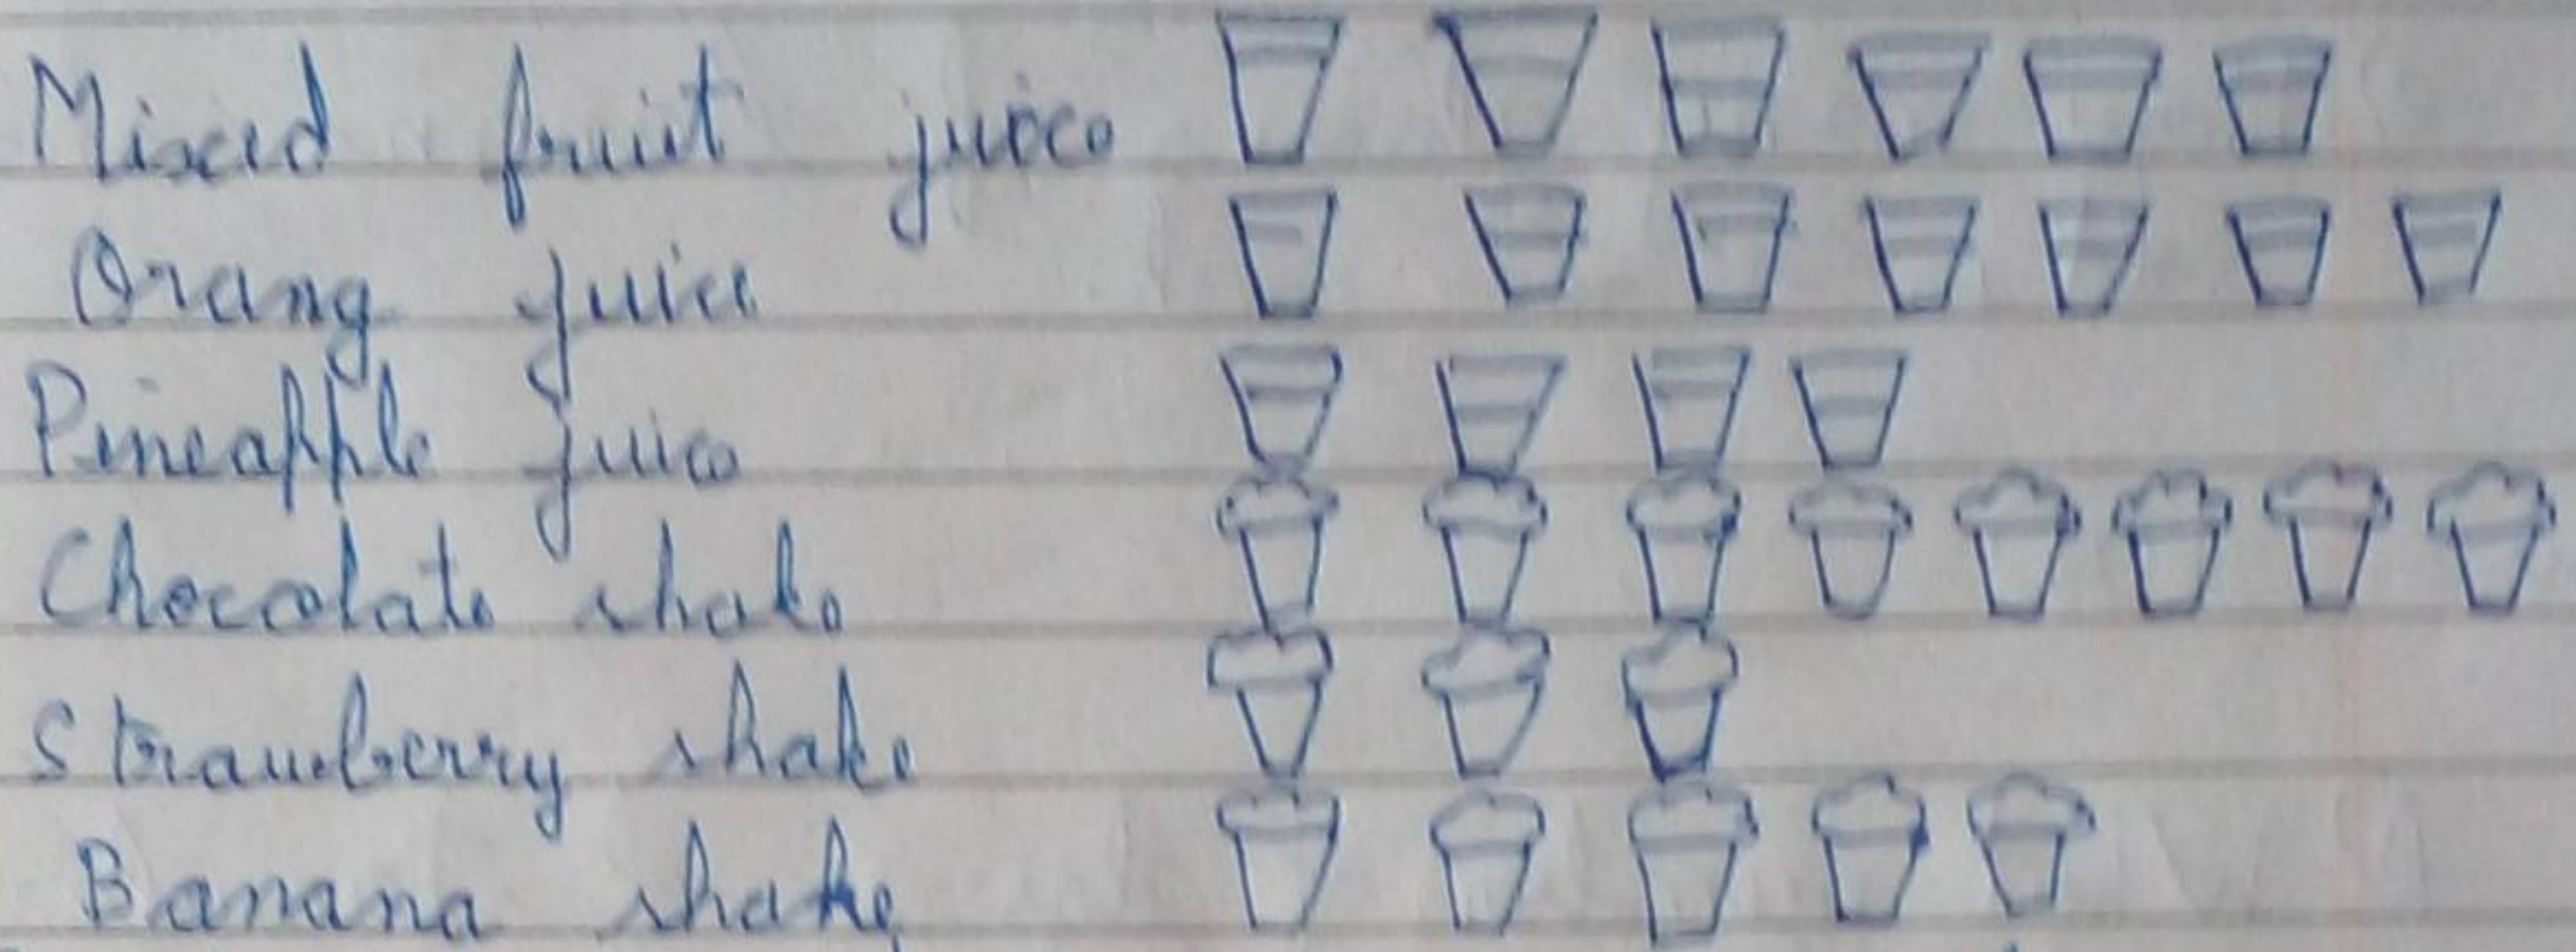 Mixed fruit juice
Orang juice
Pineapple juice
Chocolate shake
Strawberry shake
Banana shake